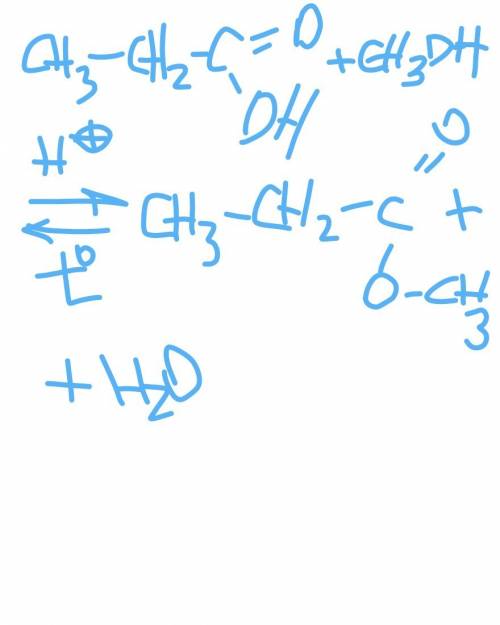 CH₃—CH₂—C=O + CH₃OH
OH
H⊕
⇌ CH₃—CH₂—C=O +
t° O—CH₃
+ H₂O